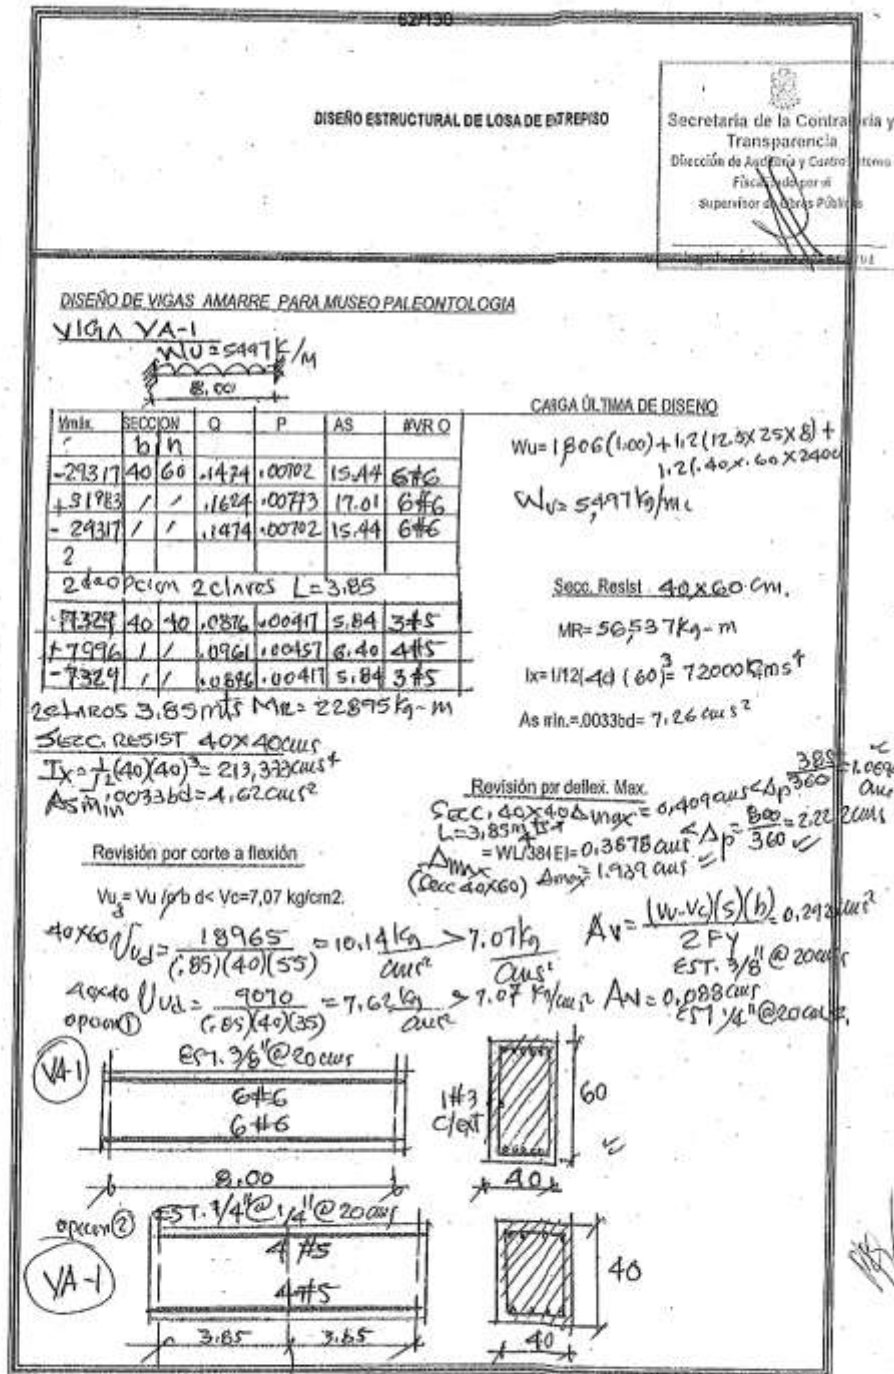 62/130
DISEÑO ESTRUCTURAL DE LOSA DE ENTREPISO
Secretaría de la Contraloría y
Transparencia
Dirección de Auditoría y Control Interno
Fiscalizado por el
Supervisor de Obras Públicas
DISEÑO DE VIGAS AMARRE PARA MUSEO PALEONTOLOGIA
VIGA VA-1
WU=5497 K/M
8.00
Mmáx. SECCION Q P AS #VR O
b h
-29317 40 60 .1474 .00702 15.44 6#6
+31983 / / .1624 .00773 17.01 6#6
-29317 / / .1474 .00702 15.44 6#6
2
2da opcion 2 claros L=3.85
-7329 40 40 .0876 .00417 5.84 3#5
+7996 / / .0961 .00457 6.40 4#5
-7329 / / .0876 .00417 5.84 3#5
2 claros 3.85mts MR= 22895 kg-m
SECC. RESIST 40X40 cms
Ix = 1/12 (40)(40)³ = 213,333 cms⁴
As min .0033bd = 4.62 cms²
CARGA ÚLTIMA DE DISENO
Wu= 1806(1.00) + 1.2(12.5X25X8) +
1.2(.40X.60X2400
Wu= 5,497 kg/mc
Secc. Resist 40X60 cm.
MR= 56,537 kg-m
Ix= 1/12(40)(60)³= 72000 cms⁴
As min.=.0033bd= 7.26 cms²
Revisión por deflex. Max.
Secc. 40X40 Δmax = 0.409 cms < Δp 385/360 = 1.069 cms
L=3.85m
Δmax = WL/384EI= 0.3678 cms < Δp = 800/360 = 2.222 cms
(Secc 40X60) Δmax = 1.939 cms
Revisión por corte a flexión
Vu = Vu /ø b d< Vc=7,07 kg/cm2.
40X60 Uud = 18965/(.85)(40)(55) = 10.14 kg/cms² > 7.07 kg/cms²
Av = (Vu-Vc)(s)(b)/2 FY = 0.292 cms²
EST. 3/8" @ 20 cms
40X40 Uud = 9070/(.85)(40)(35) = 7.62 kg/cms² > 7.07 kg/cms² Av = 0.088 cms
opcion ① EST 1/4" @20 cms
VA-1
EST. 3/8" @ 20 cms
6#6
6#6
8.00
1#3
C/ext
60
40
opcion ②
EST. 1/4"@ 1/4" @ 20 cms
VA-1
4 #5
4#5
3.85 3.85
40
40